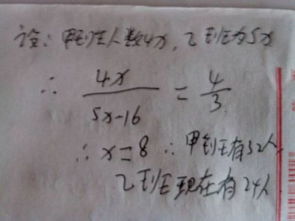 设:甲班人数4x,乙班为5x
∴ 4x/(5x-16) = 4/3
∴ x=8 ∴甲班有32人
乙班现在有24人